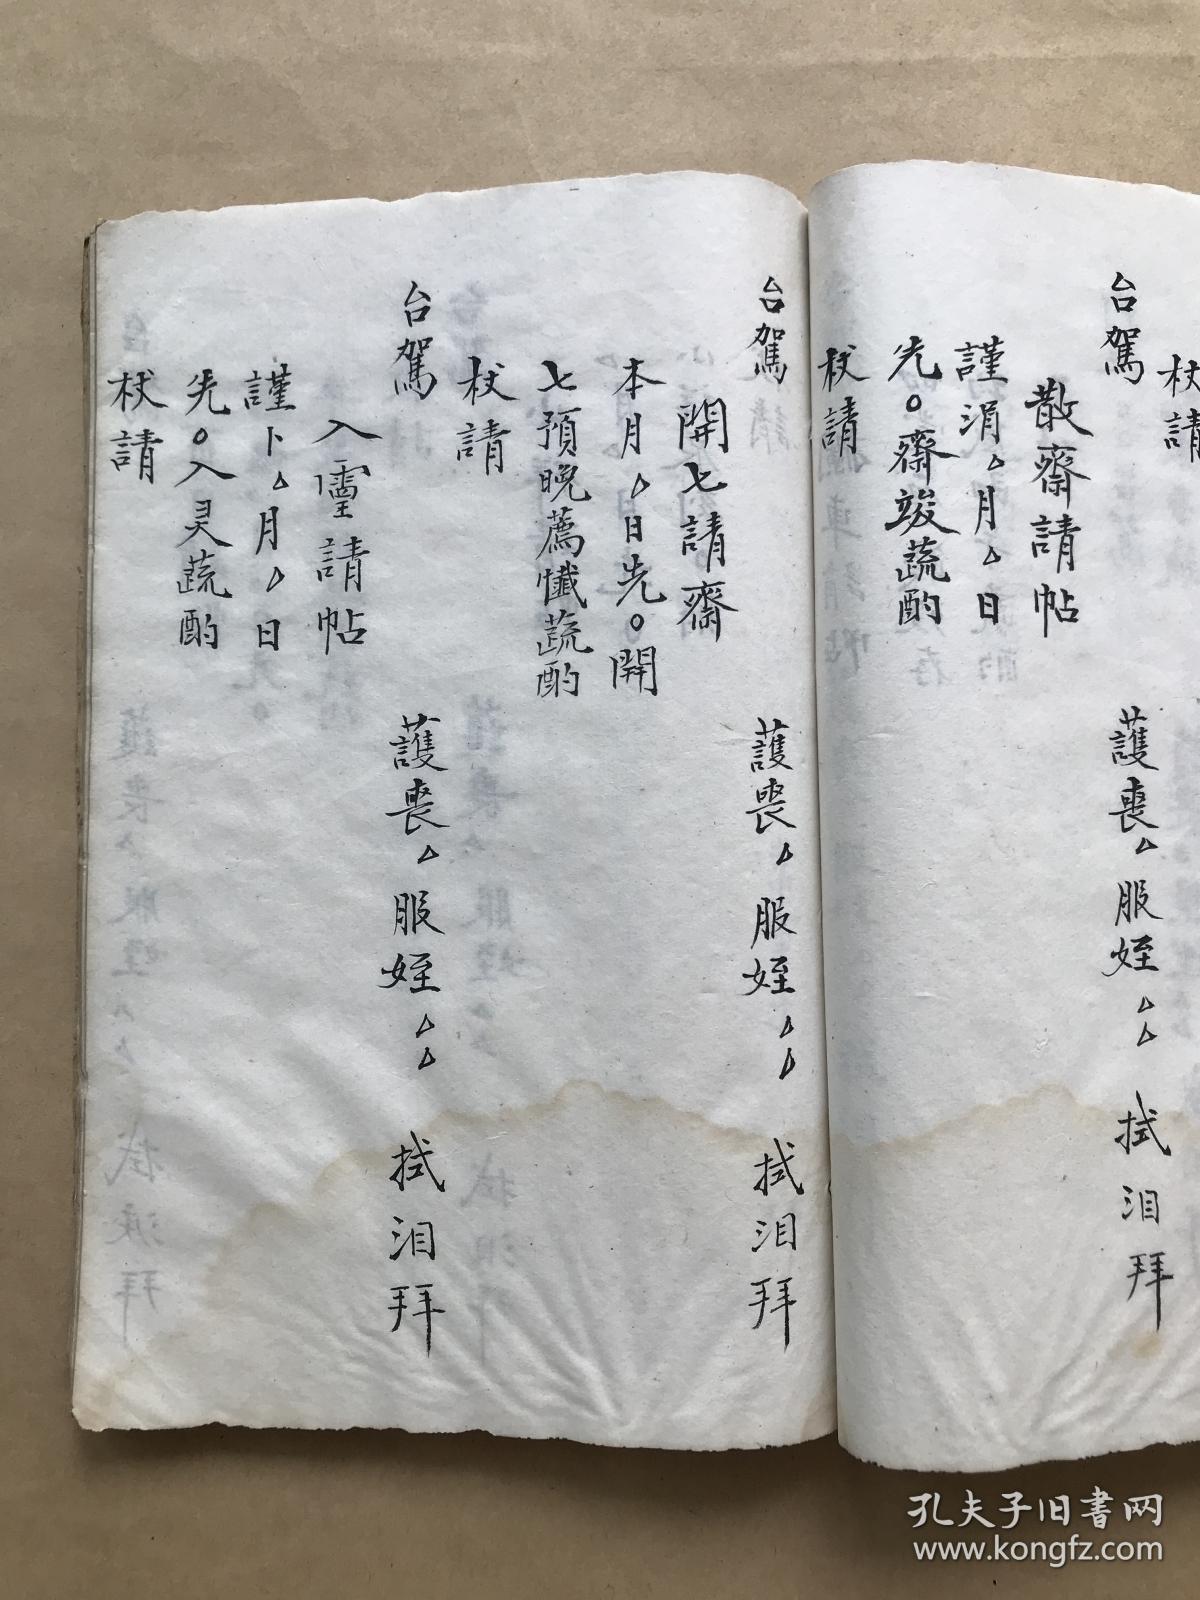 杖請
台駕 護喪△服姪△△ 拭泪拜
散齋請帖
謹涓△月△日
先○齋竣蔬酌
杖請
台駕 護喪△服姪△△ 拭泪拜
開七請齋
本月△日先○開
七預晚薦懺蔬酌
杖請
台駕 護喪△服姪△△ 拭泪拜
入靈請帖
謹卜△月△日
先○入灵蔬酌
杖請
孔夫子旧书网
www.kongfz.com